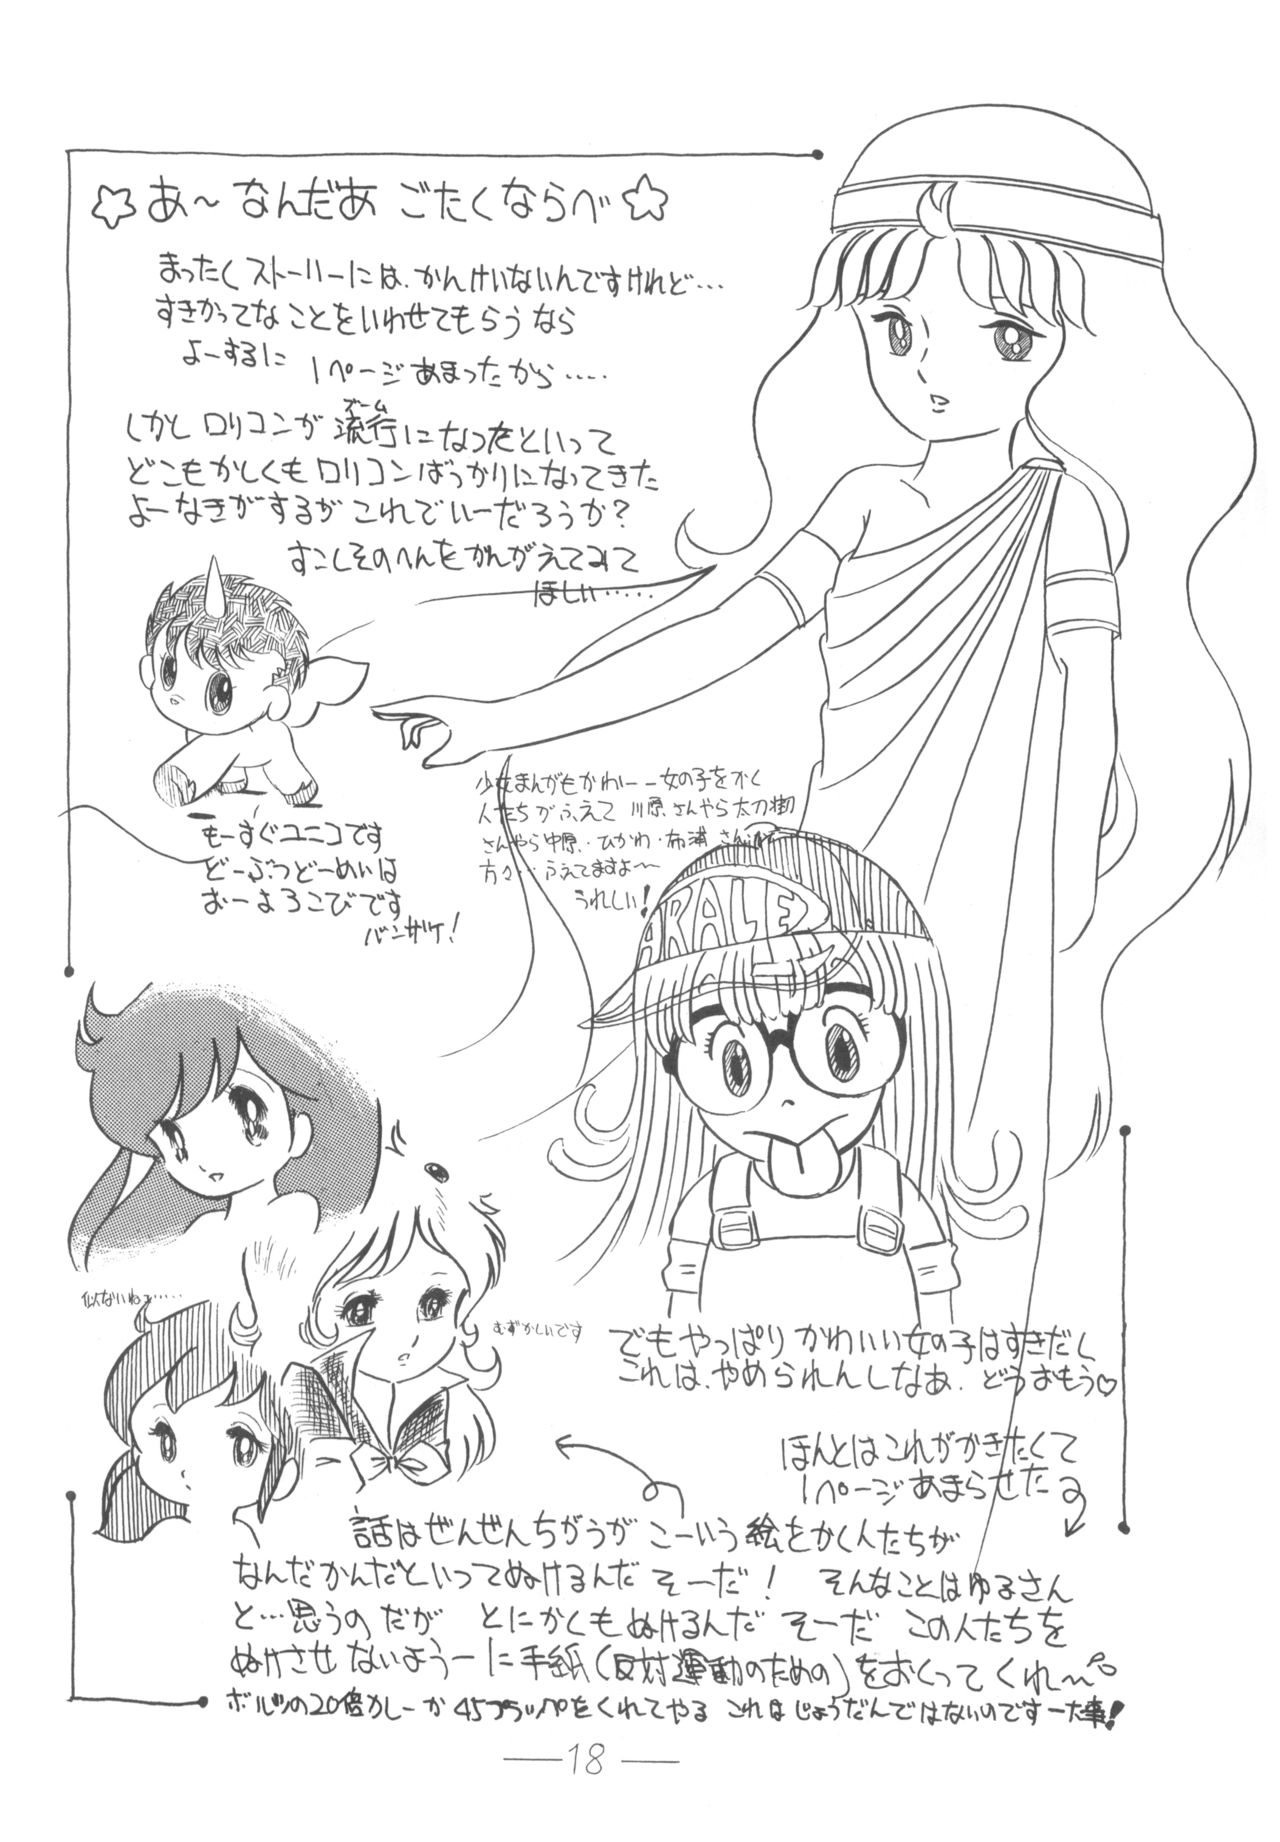 ☆ あ～ なんだあ ごたくならべ ☆
まったくストーリーには、かんけいないんですけれど…
すきかってなことをいわせてもらうなら
よーするに 1ページあまったから……
ブーム
しかしロリコンが流行になったといって
どこもかしくもロリコンばっかりになってきた
よーなきがするがこれでいーだろうか?
すこしそのへんをかんがえてみて
ほしい……
もーすぐユニコです
どーぶつどーめいは
おーよろこびです
バンザケ!
少女まんがもかわいー女の子をかく
人たちがふえて 川原さんやら太刀掛
さんやら中原・ひかわ・布浦さん
方々… ふえてますよ～
うれしい!
ARALE
似ないねェ……
むずかしいです
でもやっぱりかわいい女の子はすきだし
これは、やめられんしなあ、どうおもう♡
ほんとはこれがかきたくて
1ページあまらせた
話はぜんぜんちがうが こーいう絵をかく人たちが
なんだかんだといってぬけるんだ そーだ! そんなことはゆるさん
と…思うのだが とにかくもぬけるんだ そーだ この人たちを
ぬけさせないよう－に手紙(反対運動のための)をおくってくれ～
ボルツの20倍カレーか45フラッペをくれてやる これはじょうだんではないのです－大事!
—18—